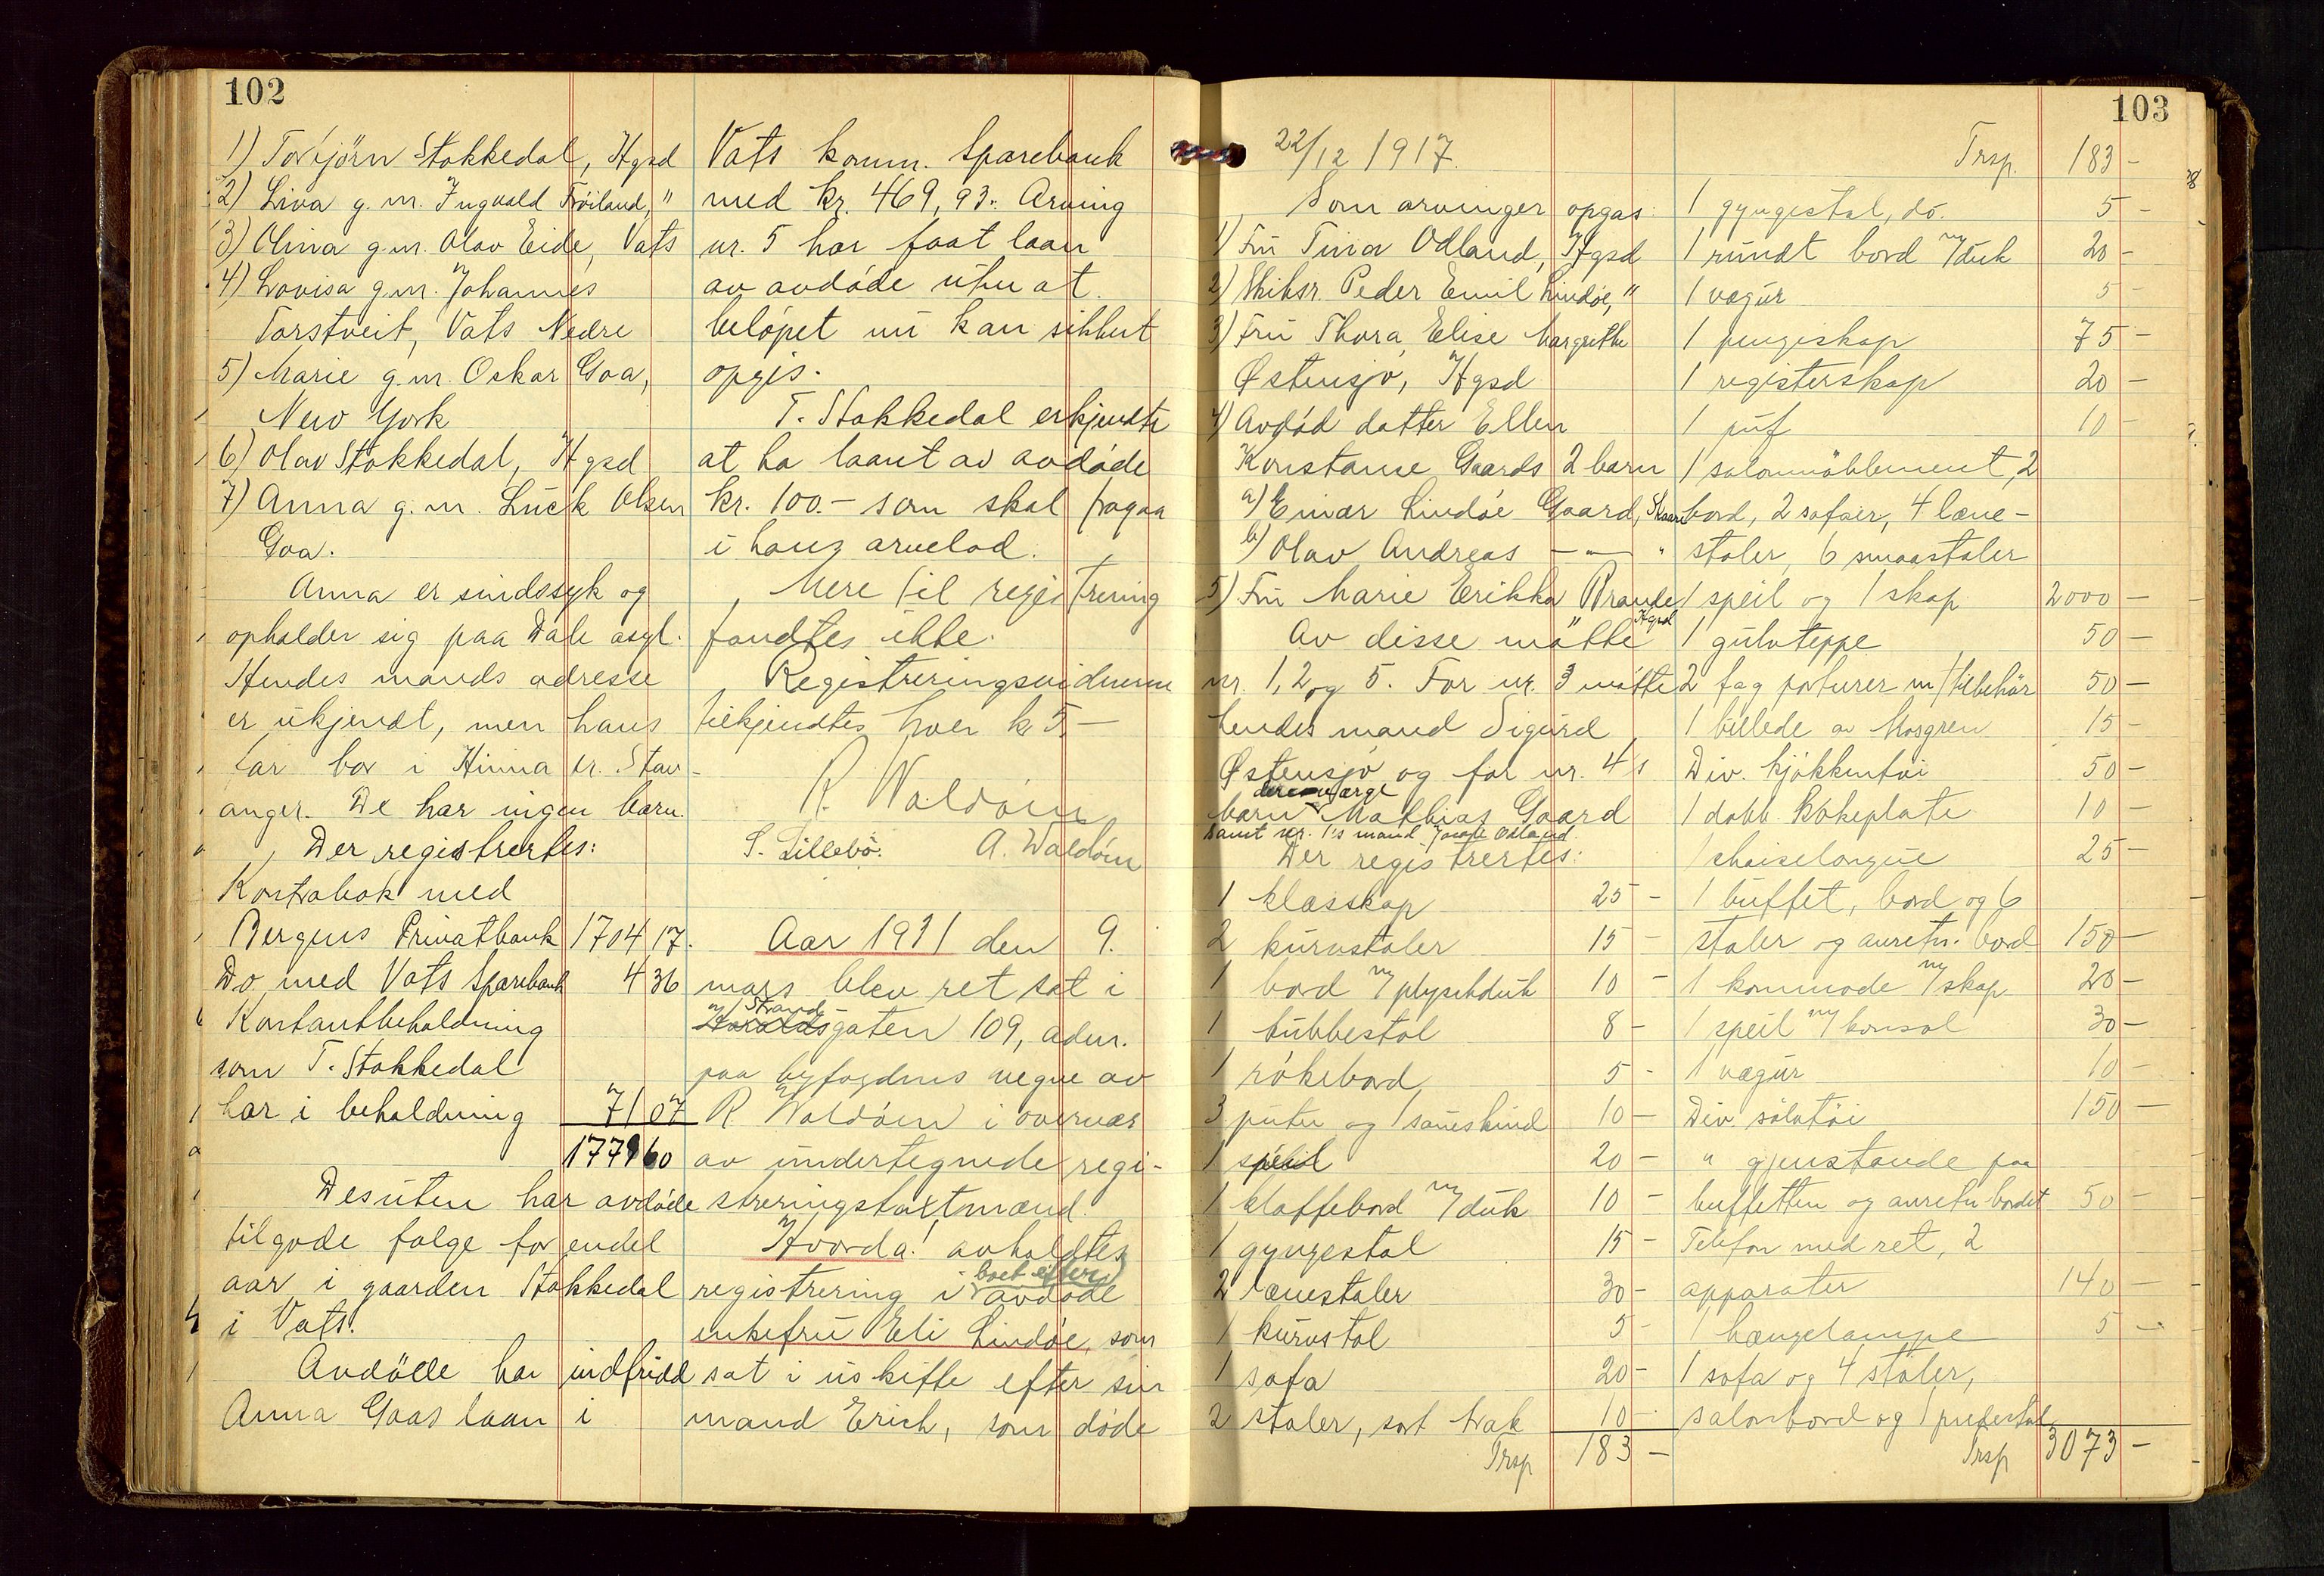 102
1) Torbjörn Stakkedal, Hgsd
2) Liva g.m. Ingvald Tröiland, "
3) Olina g.m. Olav Eide, Vats
4) Lovisa g.m. Johannes
Torstveit, Vats Nedre
5) Marie g.m. Oskar Goa,
New York
6) Olav Stakkedal, Hgsd
7) Anna g.m. Luck Olsen
Goa.
Anna er sindssyk og
opholder sig paa Dale asyl.
Hendes mands adresse
er ukjendt, men hans
far bor i Hinna pr. Stav-
anger. De har ingen barn.
Der registrertes:
Kontrabok med
Bergens Privatbank 1704 17.
Do med Vats Sparebank 4 36
Kontantbeholdning
som T. Stakkedal
har i beholdning 71 07
1779 60
Desuten har avdøde
tilgode følge for endel
aar i gaarden Stakkedal
i Vats.
Avdöde har indfridd
Anna Goas laan i
Vats komm. Sparebank
med kr. 469,93. Arving
nr. 5 har faat laan
av avdøde uten at
beløpet nu kan sikkert
opgis.
T. Stakkedal erkjendte
at ha laant av avdøde
kr. 100.- som skal fragaa
i hans arvelod.
Mere til registrering
fandtes ikke.
Registreringsvidnerne
tilkjendtes hver kr 5.—
R. Waldöm
S. Lillebö. A. Waldöm
Aar 1931 den 9.
mars blev ret sat i
Strand-
Haraldsgaten 109, adm.
paa byfogdens vegne av
R. Waldöm i overvær
av undertegnede regi-
streringstaxtmænd.
Hvorda! avholdtes
boet efter
registrering i avdöde
enkefru Eli Lindöe, som
sat i uskifte efter sin
mand Erich, som døde
103
22/12 1917.
Som arvinger opgas:
1) Fru Tina Odland, Hgsd
2) Skibsr. Peder Emil Lindøe, "
3) Fru Thora Elise Margrethe
Østensjø, Hgsd
4) Avdød datter Ellen
Konstanse Gaards 2 barn
a) Einar Lindøe Gaard, Skaare
b) Olav Andreas —"— "
5) Fru Marie Erikka Brande
Hgsd
Av disse møtte
nr. 1, 2 og 5. For nr. 3 møtte
hendes mand Sigurd
Østensjø og for nr. 4's
deres værge
barn Mathias Gaard
samt nr. 1's mand Odland.
Der registrertes:
1 klæsskap 25 -
2 kurvstoler 15 -
1 bord m/ plyschduk 10 -
1 kubbestol 8 -
1 rökebord 5 -
3 puter og 1 saueskind 10 -
1 speil 20 -
1 klaffebord m/ duk 10 -
1 gyngestol 15 -
2 lænestoler 30 -
1 kurvstol 5 -
1 sofa 20 -
2 stoler, sort trak 10 -
Trsp 183 -
Trsp. 183 -
1 gyngestol, do. 5 -
1 rundt bord m/ duk 20 -
1 vægur 5 -
1 pengeskap 75 -
1 registerskap 20 -
1 puf 10 -
1 salonmöblement, 2
bord, 2 sofaer, 4 læne-
stoler, 6 smaastoler
1 speil og 1 skap 2000 -
1 gulvteppe 50 -
2 fag portierer m/ tilbehör 50 -
1 billede av Mosgren 15 -
Div. kjökkentöi 50 -
1 dobb. kokeplate 10 -
1 chaiselongue 25 -
1 buffet, bord og 6
stoler og anretn. bord 150 -
1 kommode m/ skap 20 -
1 speil m/ konsol 30 -
1 vægur 10 -
Div. sølvtøi 150 -
" gjenstande paa
buffetten og anretn. bordet 50 -
Telefon med ret, 2
apparater 140 -
1 hængelampe 5 -
1 sofa og 4 stoler,
salonbord og 1 pidestal
Trsp 3073 -